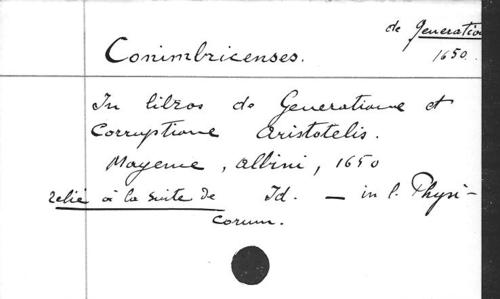 de Generatio
1650.
Conimbricenses.
In libros de Generatione et
Corruptione Aristotelis.
Mayence, Albini, 1650
relié à la suite de Id. — in l. Physi-
corum.